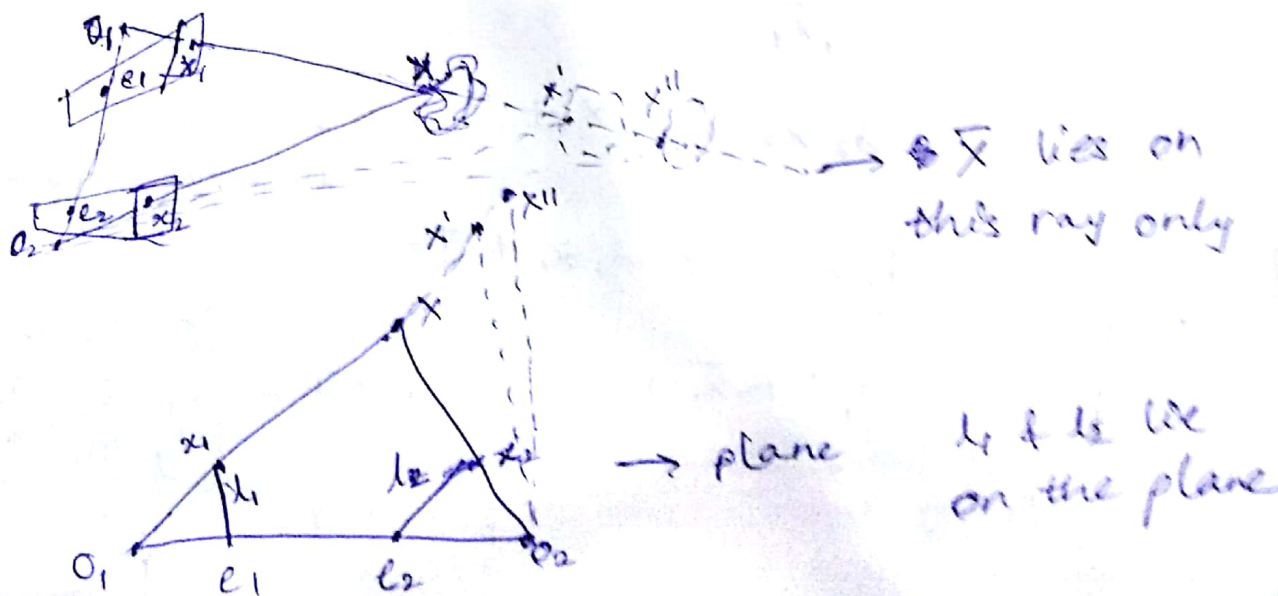 O₁
e₁
x₁
X
X'
X''
→ X̄ lies on
this ray only
e₂
x₂
O₂
X''
X'
X
x₁
l₁
l₂
x₂'
→ plane
l₁ & l₂ lie
on the plane
O₁
e₁
e₂
O₂